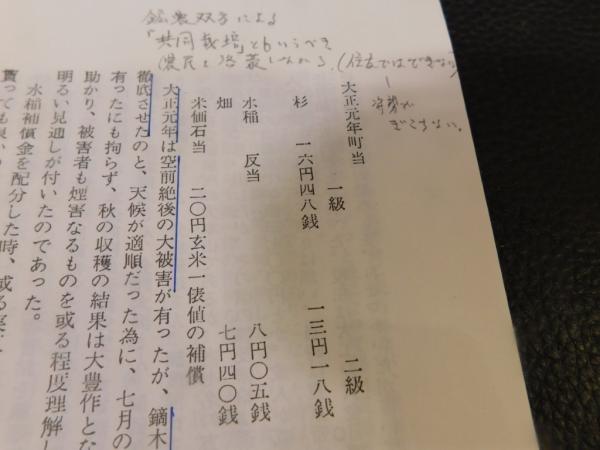 鉱農双方による
「共同栽培」ともいうべき
農民と
(住友ではできない)
大正元年町当
一級　二級
杉　一六円四八銭　一三円一八銭
水稲　反当　八円〇五銭
畑　七円四〇銭
米価石当　二〇円玄米一俵値の補償
大正元年は空前絶後の大被害が有ったが、鏑木
徹底させたのと、天候が適順だった為に、七月の
有ったにも拘らず、秋の収穫の結果は大豊作とな
助かり、被害者も煙害なるものを或る程度理解し
明るい見通しが付いたのであった。
水稲補償金を配分した時、或る
貰っても